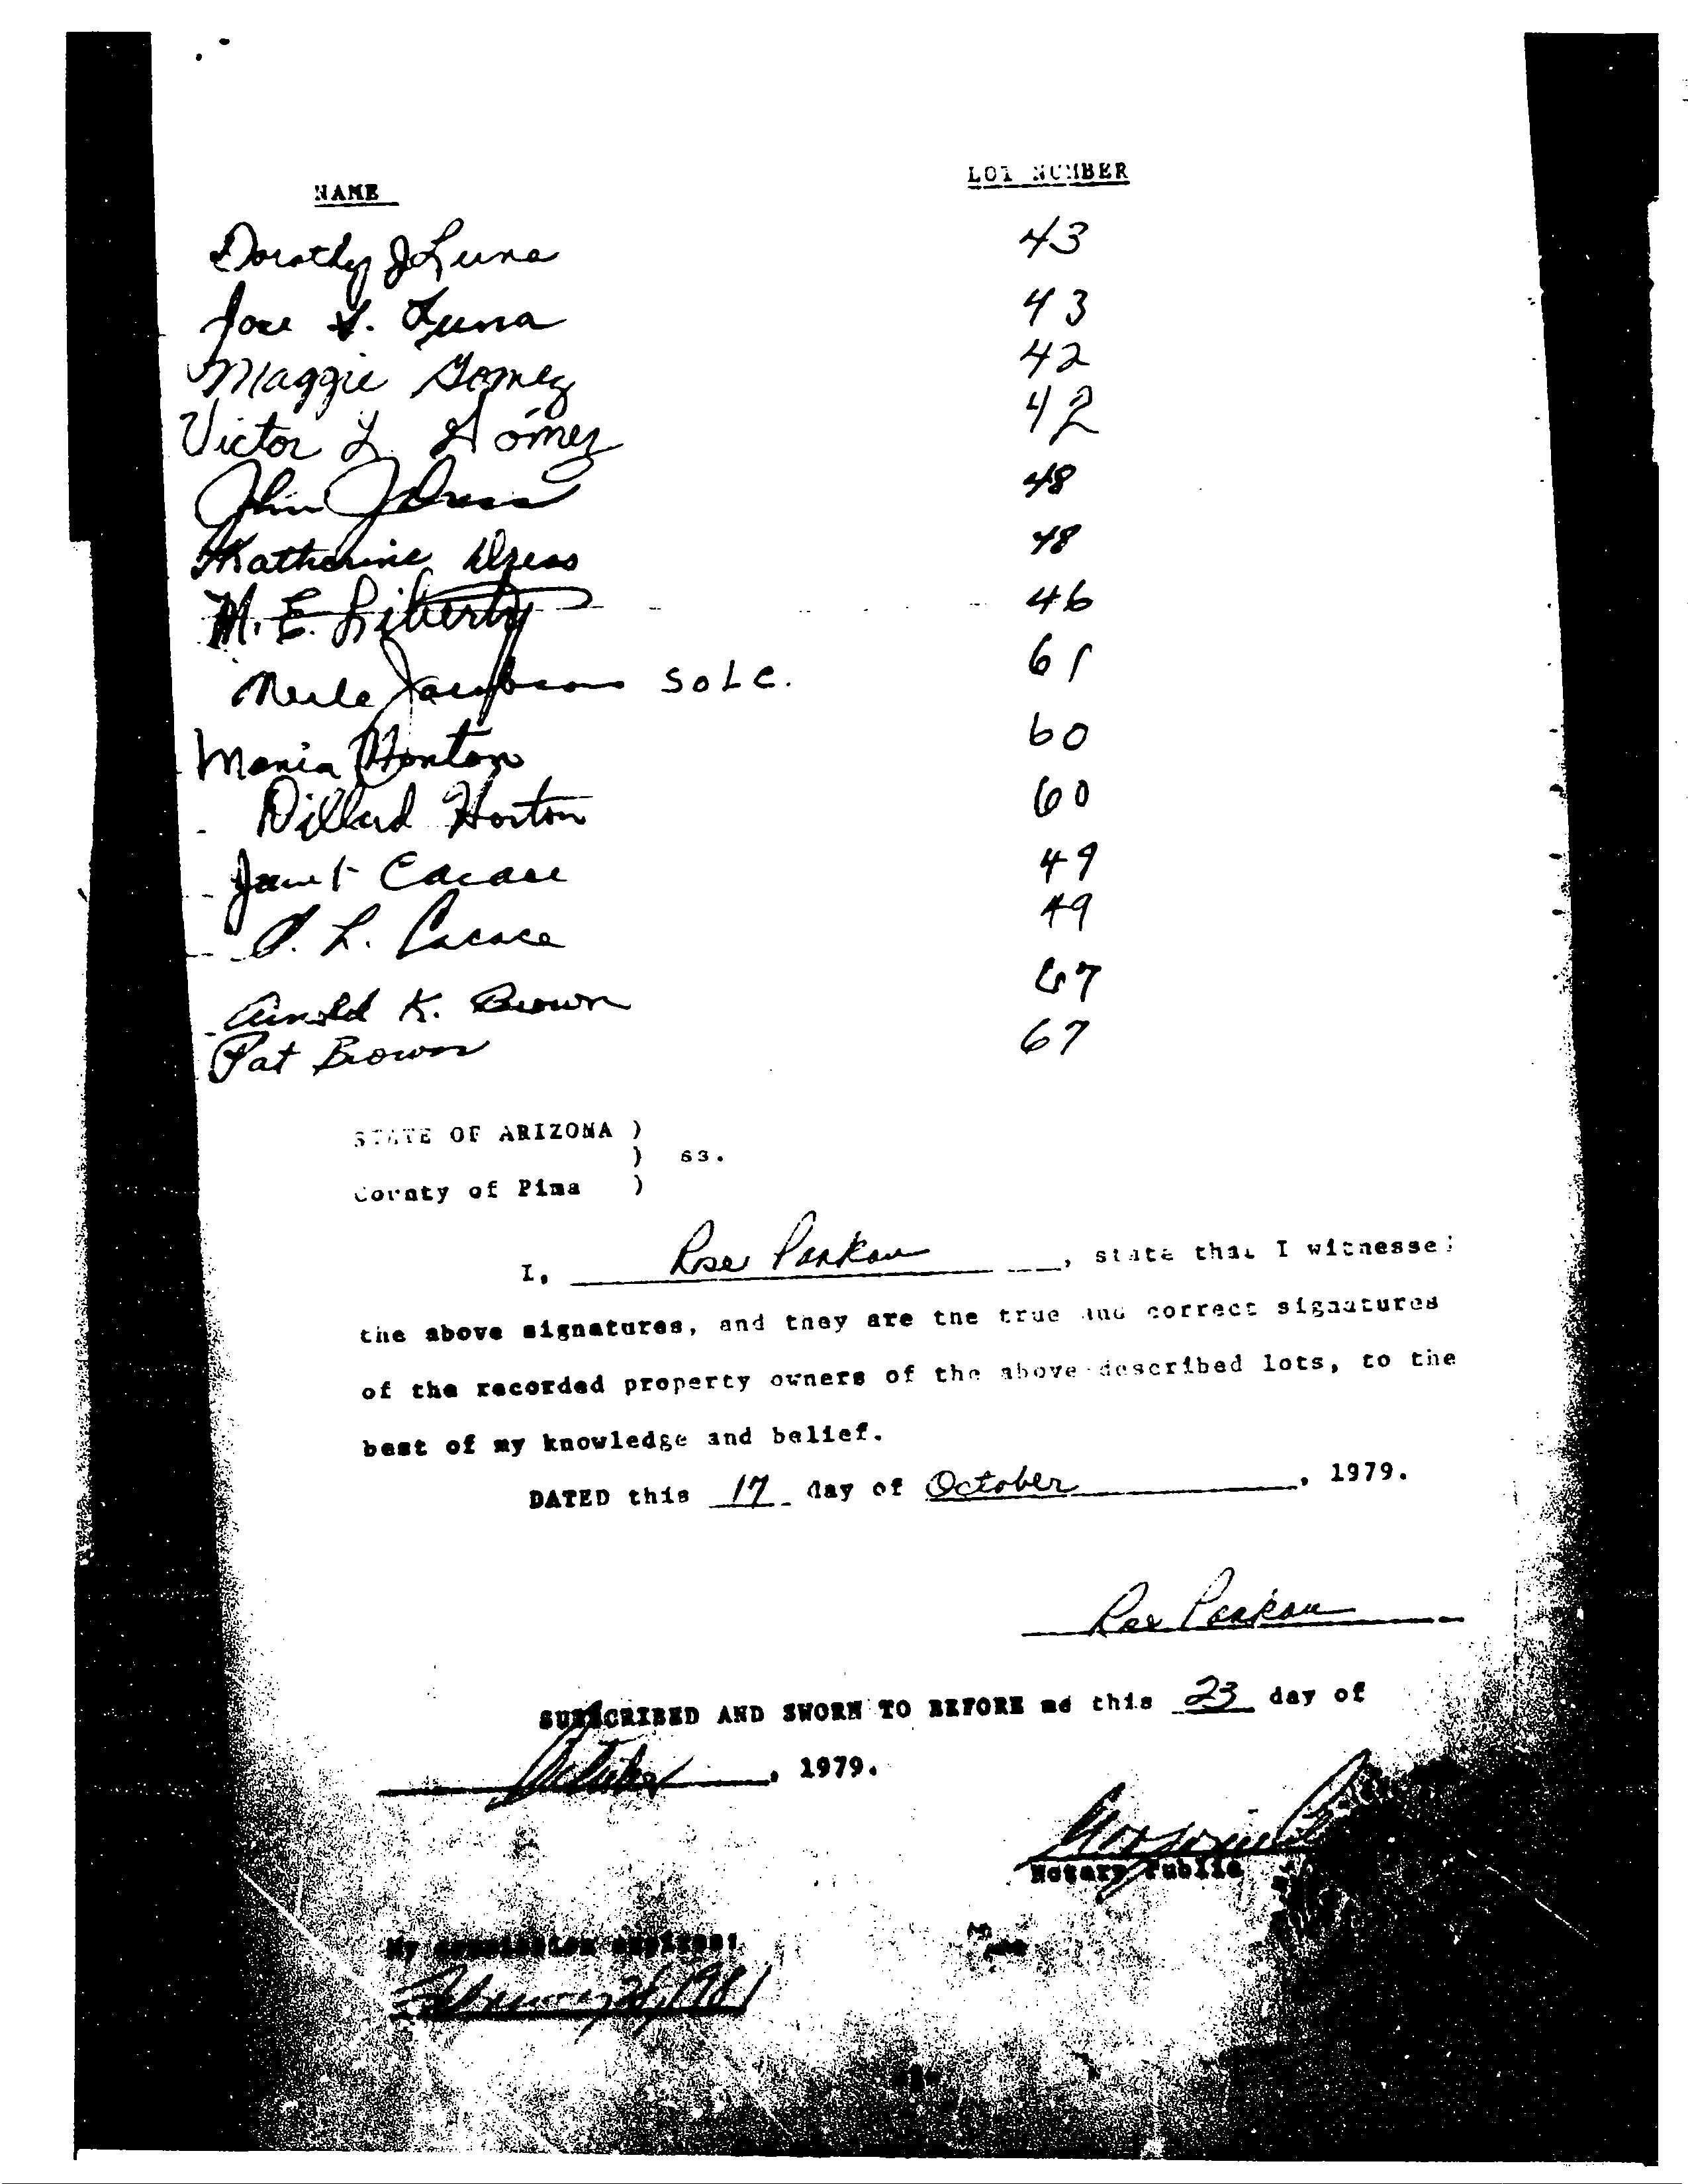 NAME LOT NUMBER
Dorothy J Luna 43
Jose Luna 43
Maggie Gomez 42
Victor L. Gómez 42
John J 48
Katherine Dress 48
M. E. Liberty 46
Merle Jacobson SOLE. 61
Maria Horton 60
Dillard Horton 60
Janet Cacace 49
L. Cacace 49
Arnold K. Brown 67
Pat Brown 67
STATE OF ARIZONA )
) ss.
County of Pima )
I, Rose , state that I witnessed
the above signatures, and they are the true and correct signatures
of the recorded property owners of the above described lots, to the
best of my knowledge and belief.
DATED this 17 day of October, 1979.
SUBSCRIBED AND SWORN TO BEFORE me this 23 day of
October, 1979.
Notary Public
My commission expires:
February 1981